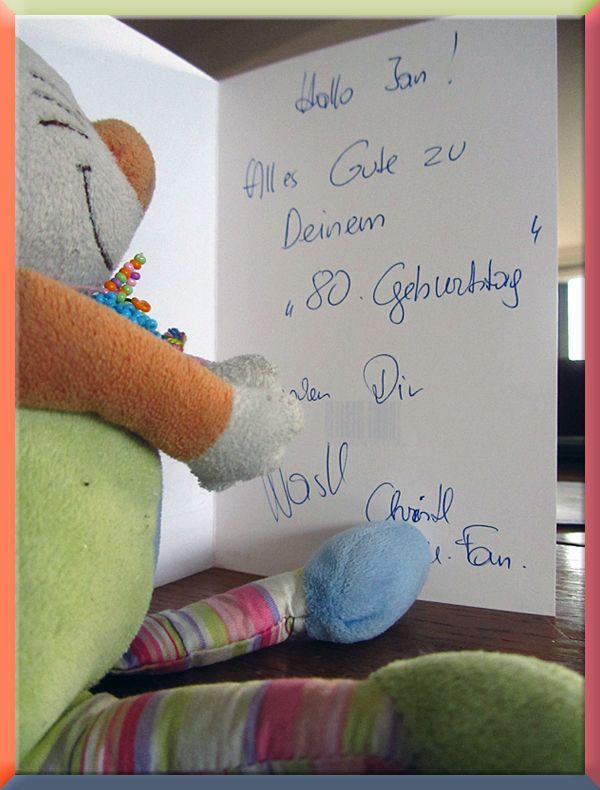 Hallo Jan!
Alles Gute zu
Deinem
„80. Geburtstag“
Dir
Wastl
Christl
u. Fam.